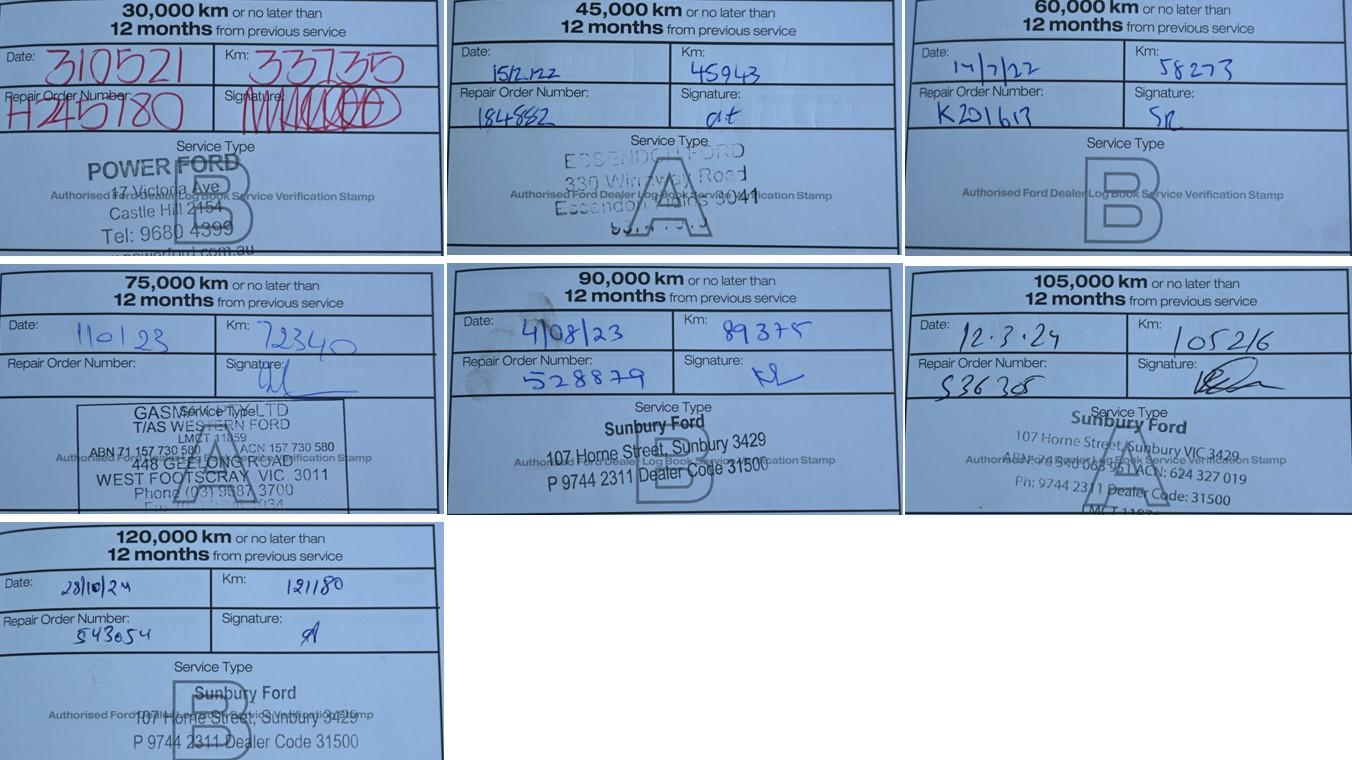 30,000 km or no later than
12 months from previous service
Date: 310521 Km: 33735
Repair Order Number: H245780 Signature:
Service Type
B
POWER FORD
17 Victoria Ave
Authorised Ford Dealer Log Book Service Verification Stamp
Castle Hill 2154
Tel: 9680 4399
45,000 km or no later than
12 months from previous service
Date: 15/2.122 Km: 45943
Repair Order Number: 184882 Signature:
Service Type
A
ESSENDON FORD
330 Wirraway Road
Authorised Ford Dealer Log Book Service Verification Stamp
Essendon Fields 3041
60,000 km or no later than
12 months from previous service
Date: 14/7/22 Km: 58273
Repair Order Number: K201613 Signature: SR
Service Type
B
Authorised Ford Dealer Log Book Service Verification Stamp
75,000 km or no later than
12 months from previous service
Date: 110123 Km: 72340
Repair Order Number: Signature:
Service Type
A
T/AS WESTERN FORD
LMCT 11059
ABN 71 157 730 580 ACN 157 730 580
Authorised Ford Dealer Log Book Service Verification Stamp
448 GEELONG ROAD
WEST FOOTSCRAY VIC 3011
Phone (03) 9687 3700
90,000 km or no later than
12 months from previous service
Date: 4/08/23 Km: 89375
Repair Order Number: 528879 Signature:
Service Type
B
Sunbury Ford
107 Horne Street, Sunbury 3429
Authorised Ford Dealer Log Book Service Verification Stamp
P 9744 2311 Dealer Code 31500
105,000 km or no later than
12 months from previous service
Date: 12.3.24 Km: 105216
Repair Order Number: 536305 Signature:
Service Type
A
Sunbury Ford
107 Horne Street, Sunbury VIC 3429
Authorised Ford Dealer Log Book Service Verification Stamp
ACN: 624 327 019
Ph: 9744 2311 Dealer Code: 31500
120,000 km or no later than
12 months from previous service
Date: 28/10/24 Km: 121180
Repair Order Number: 543054 Signature:
Service Type
B
Sunbury Ford
Authorised Ford Dealer Log Book Service Verification Stamp
107 Horne Street, Sunbury 3429
P 9744 2311 Dealer Code 31500